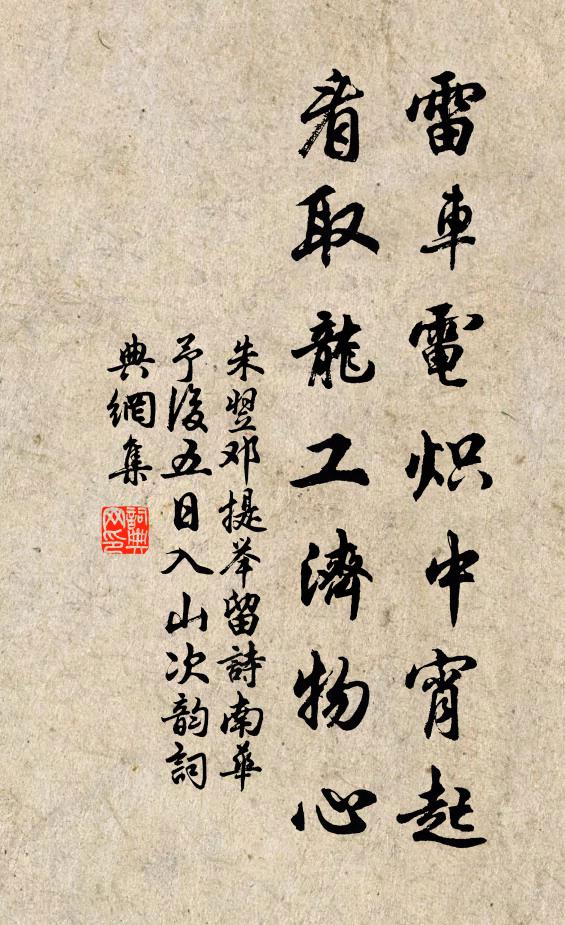 雷車電炽中宵起
看取龍工濟物心
朱翌邓提举留詩南華
予後五日入山次韵詞
典網集
詞典网印